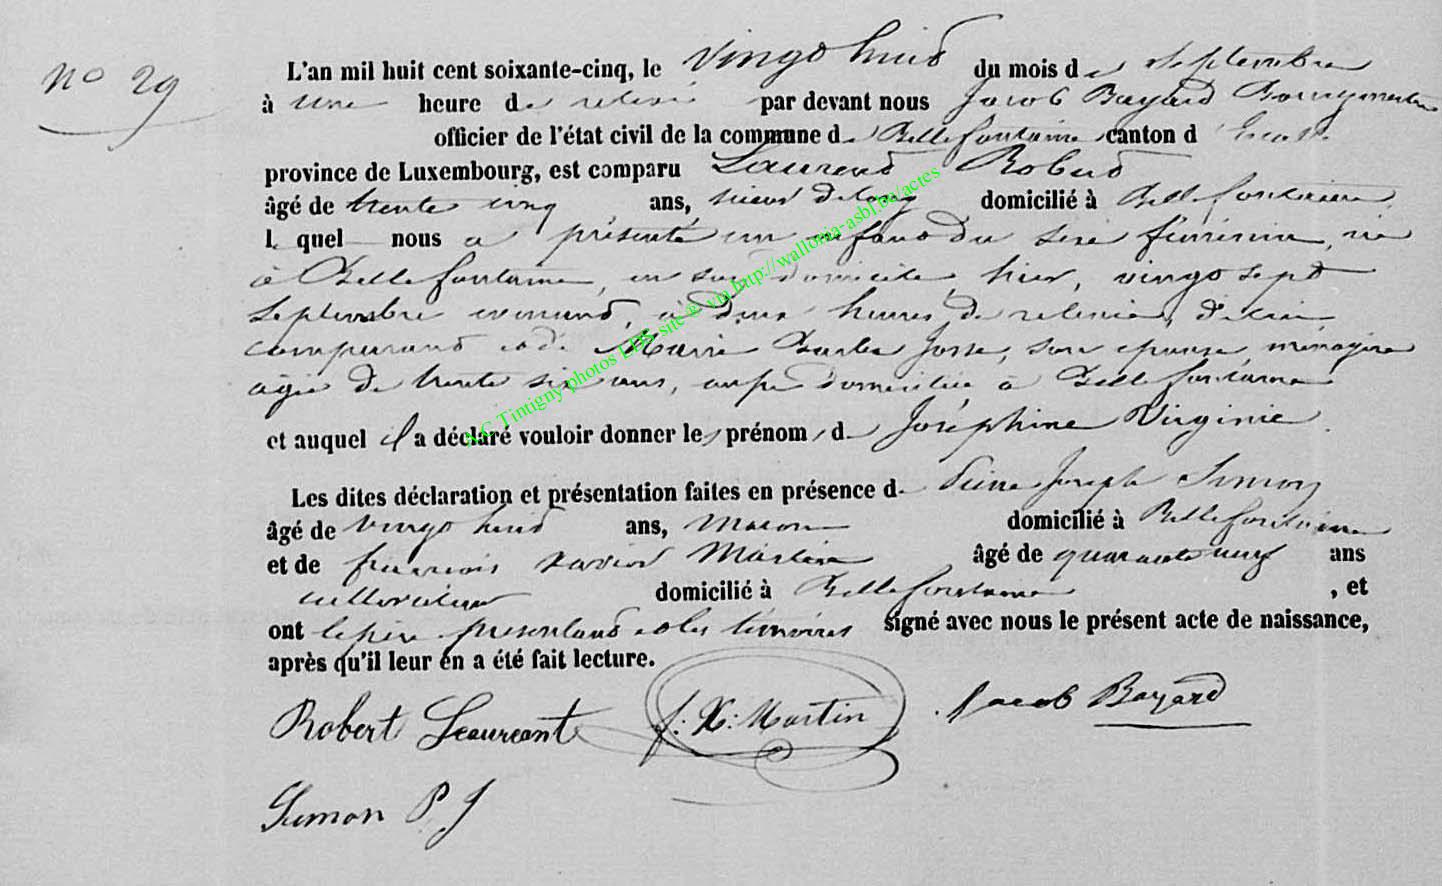 No 29
L'an mil huit cent soixante-cinq, le vingt huit du mois de septembre
à une heure de relevée par devant nous Jacob Bayard Bourgmestre
officier de l'état civil de la commune de Bellefontaine canton d'Etalle
province de Luxembourg, est comparu Laurent Robert
âgé de trente cinq ans, scieur de long domicilié à Bellefontaine
lequel nous a présenté un enfant du sexe féminin, né
à Bellefontaine, en son domicile, hier, vingt sept
septembre courant, à deux heures de relevée, de lui
comparant et de Marie Barbe Josse, son épouse, ménagère
âgée de trente six ans, aussi domiciliée à Bellefontaine
et auquel il a déclaré vouloir donner les prénoms de Joséphine Virginie.
Les dites déclaration et présentation faites en présence de Pierre Joseph Simon
âgé de vingt huit ans, maçon domicilié à Bellefontaine
et de françois xavier Martin âgé de quarante neuf ans
cultivateur domicilié à Bellefontaine, et
ont le père présentant et les témoins signé avec nous le présent acte de naissance,
après qu'il leur en a été fait lecture.
Robert Leaureant f: X: Martin Jacob Bayard
Simon P J
A.C. Tintigny photos LDS site via http://wallonia-asbl.be/actes